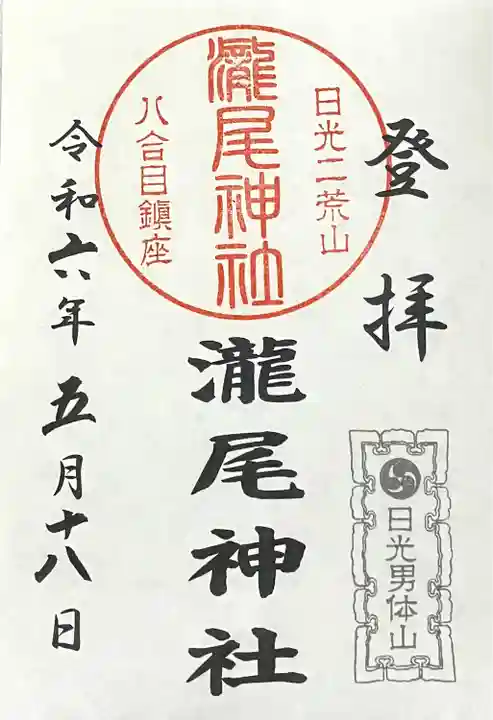 登拝
日光男体山
日光二荒山
瀧尾神社
八合目鎮座
瀧尾神社
令和六年五月十八日